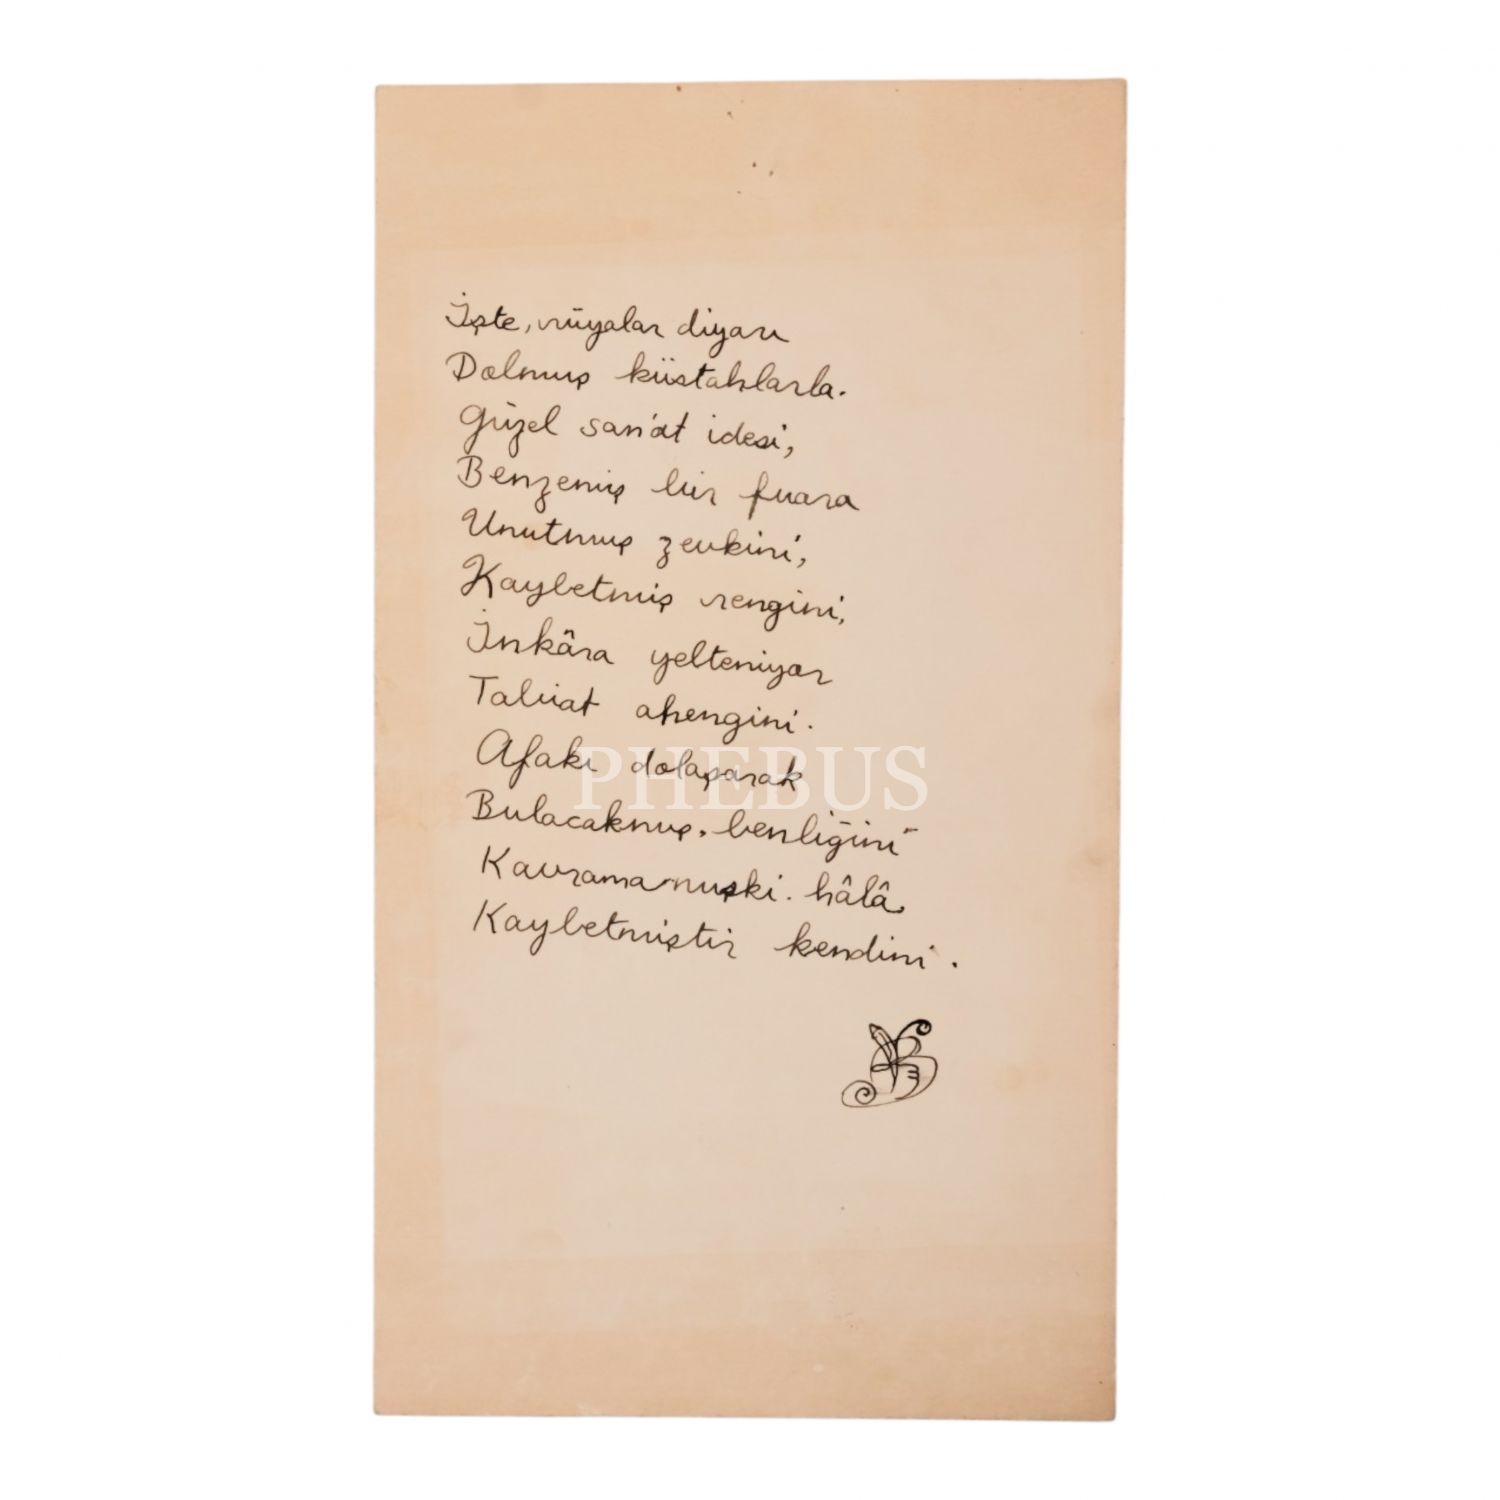 İşte, rüyalar diyarı
Dolmuş küstahlarla.
Güzel san'at idesi,
Benzemiş bir fuara
Unutmuş zevkini,
Kaybetmiş rengini,
İnkâra yelteniyor
Tabiat ahengini.
Afakı dolaşarak
PHEBUS
Bulacakmış, benliğini
Kavramamışki. hâlâ
Kaybetmiştir kendini.